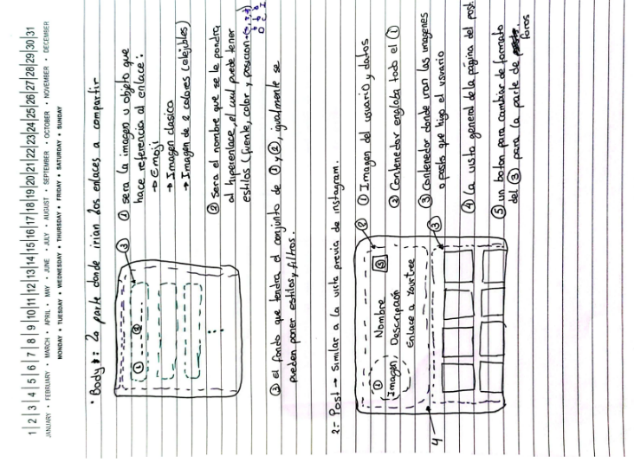 1 | 2 | 3 | 4 | 5 | 6 | 7 | 8 | 9 | 10 | 11 | 12 | 13 | 14 | 15 | 16 | 17 | 18 | 19 | 20 | 21 | 22 | 23 | 24 | 25 | 26 | 27 | 28 | 29 | 30 | 31
JANUARY • FEBRUARY • MARCH • APRIL • MAY • JUNE • JULY • AUGUST • SEPTEMBER • OCTOBER • NOVEMBER • DECEMBER
MONDAY • TUESDAY • WEDNESDAY • THURSDAY • FRIDAY • SATURDAY • SUNDAY
• Body: La parte donde irian los enlaces a compartir
① ②
③
① sera la imagen u objeto que
hace referencia al enlace:
→ Emoji
→ Imagen clasico
→ Imagen de 2 colores (elejibles)
② sera el nombre que se le pondra
al hiperenlace, el cual puede tener
estilos (fuente, color y posicion
③ el fondo que tendra el conjunto de ① y ②, igualmente se
pueden poner estilos y filtros.
2- Post → Similar a la vista previa de instagram.
①
Imagen
Nombre
Descripción
Enlace a Yourtree
5
②
③
4
① Imagen del usuario y datos
② Contenedor englaba todo el ①
③ Contenedor donde iran las imagenes
o posts que hizo el usuario
④ La vista general de la página del post
⑤ un boton para cambiar de formato
del ③ para la parte de foros